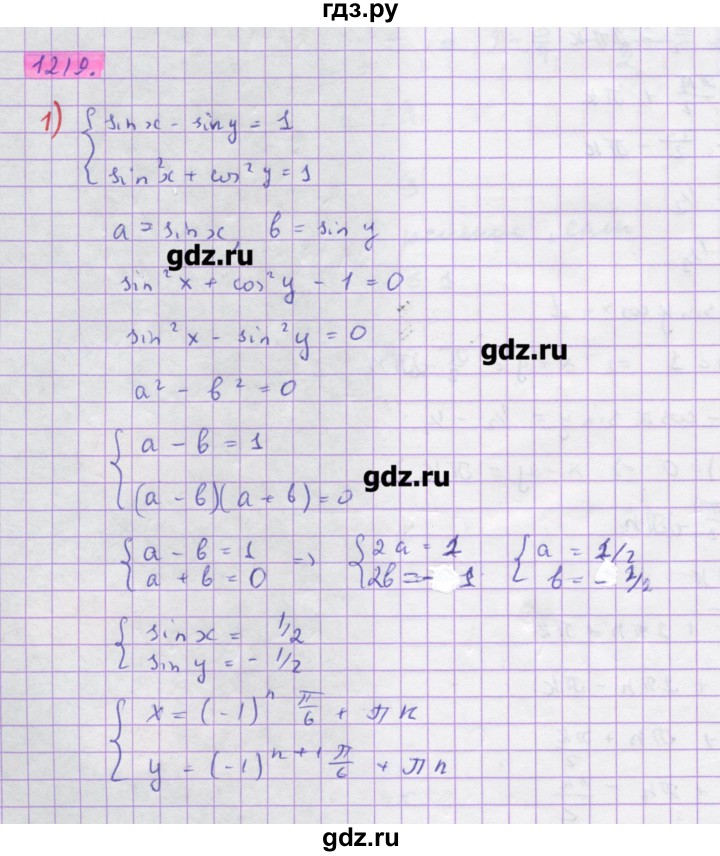 гдз.ру
1219.
1) { sin x - sin y = 1
sin²x + cos²y = 1
a = sin x, b = sin y
gdz.ru
sin²x + cos²y - 1 = 0
sin²x - sin²y = 0
gdz.ru
a² - b² = 0
{ a - b = 1
(a - b)(a + b) = 0
gdz.ru
{ a - b = 1 => { 2a = 1 { a = 1/2
a + b = 0 2b = - 1 b = - 1/2
{ sin x = 1/2
sin y = - 1/2
{ x = (-1)ⁿ π/6 + πn
y = (-1)ⁿ⁺¹ π/6 + πn
gdz.ru